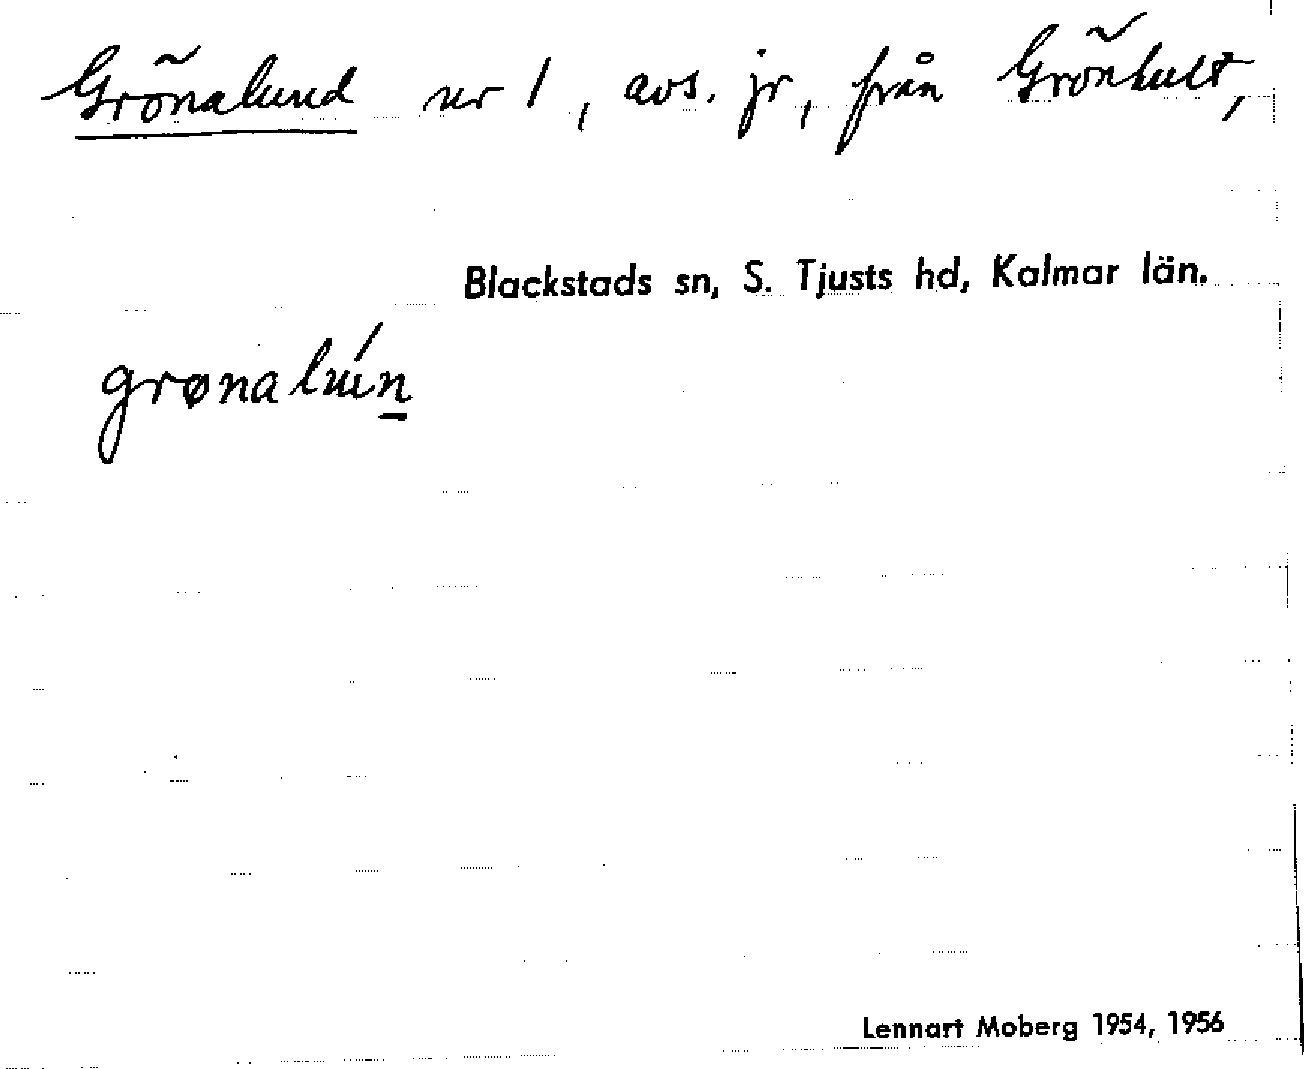 Grönalund nr 1, avs. jr, från Grönhult,
Blackstads sn, S. Tjusts hd, Kalmar län.
grønalún
Lennart Moberg 1954, 1956